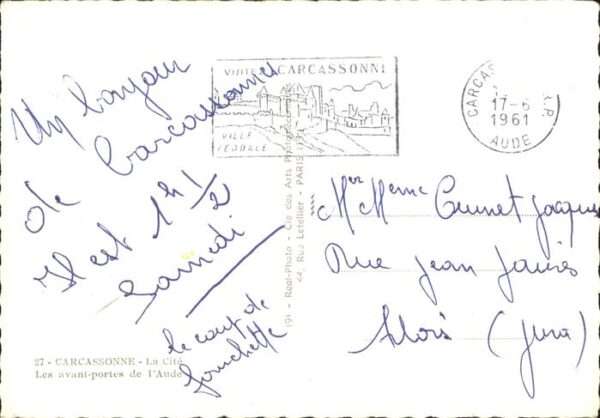 Un bonjour
de Carcassonne
Il est 1h 1/2
Samedi
le coup de
fourchette
27 - CARCASSONNE - La Cité
Les avant-portes de l'Aude
VISITEZ CARCASSONNE
VILLE
CARCAS
17-6
1961
AUDE
Real-Photo - Cie des Arts
44, Rue Letellier - PARIS
Mr Mme Jacques
Rue Jean Jaurès
(Jura)